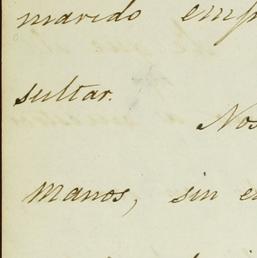 marido emp
sultar.
Nos
manos, sin e